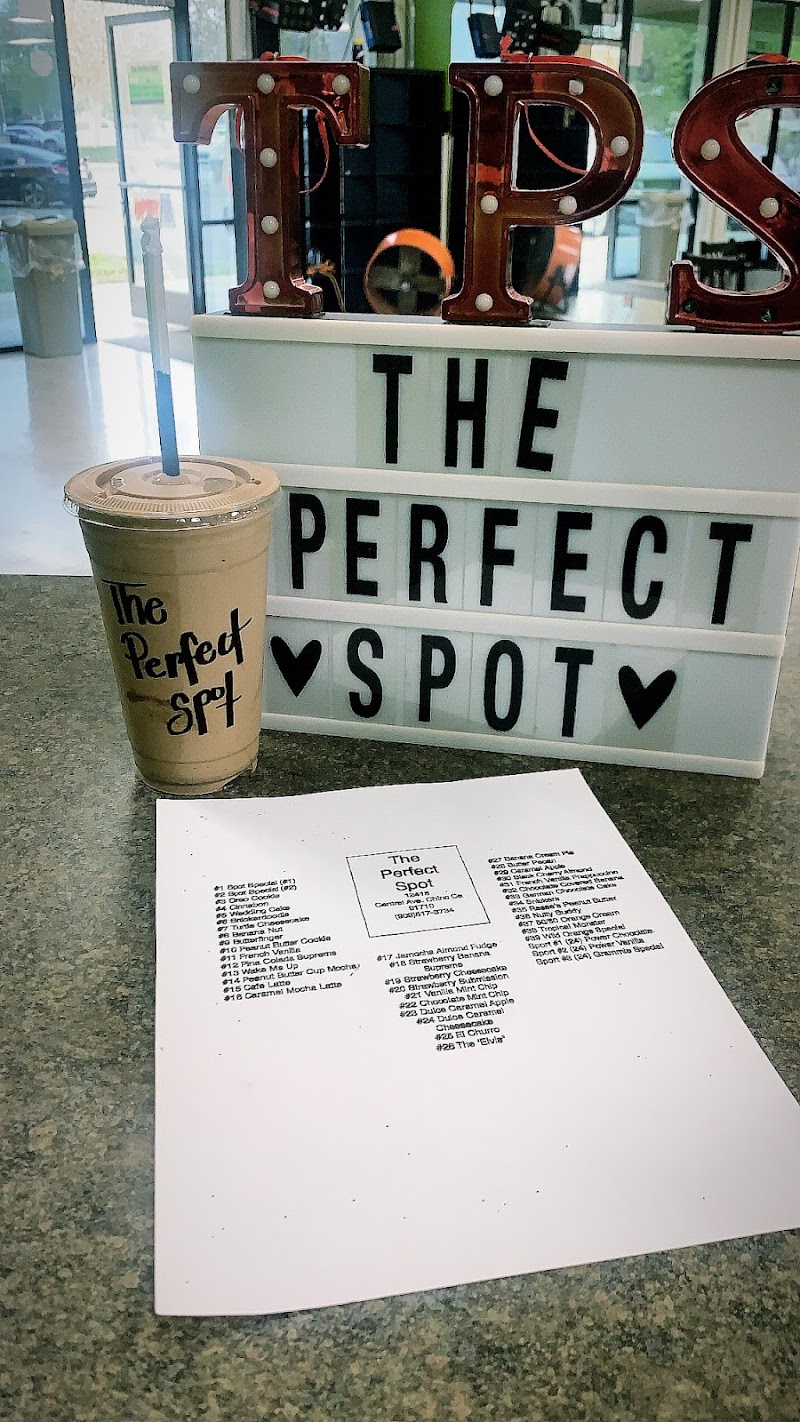 TPS
THE
PERFECT
♥SPOT♥
The
Perfect
Spot
The
Perfect
Spot
12418
Central Ave. Chino Ca
91710
(909)517-3734
#1 Spot Special (#1)
#2 Spot Special (#2)
#3 Oreo Cookie
#4 Cinnabon
#5 Wedding Cake
#6 Snickerdoodle
#7 Turtle Cheesecake
#8 Banana Nut
#9 Butterfinger
#10 Peanut Butter Cookie
#11 French Vanilla
#12 Pina Colada Supreme
#13 Wake Me Up
#14 Peanut Butter Cup Mocha
#15 Cafe Latte
#16 Caramel Mocha Latte
#17 Jamocha Almond Fudge
#18 Strawberry Banana
Supreme
#19 Strawberry Cheesecake
#20 Strawberry Submission
#21 Vanilla Mint Chip
#22 Chocolate Mint Chip
#23 Dulce Caramel Apple
#24 Dulce Caramel
Cheesecake
#25 El Churro
#26 The "Elvis"
#27 Banana Cream Pie
#28 Butter Pecan
#29 Caramel Apple
#30 Black Cherry Almond
#31 French Vanilla Frappuccino
#32 Chocolate Covered Banana
#33 German Chocolate Cake
#34 Snickers
#35 Reese's Peanut Butter
#36 Nutty Buddy
#37 50/50 Orange Cream
#38 Tropical Monster
#39 Wild Orange Special
Sport #1 (24) Power Chocolate
Sport #2 (24) Power Vanilla
Sport #3 (24) Grammie Special